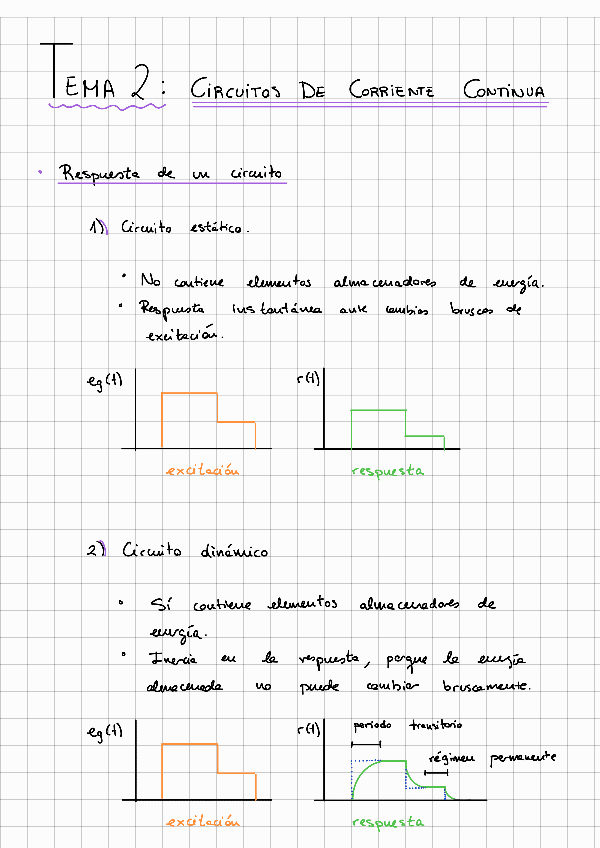 TEMA 2: CIRCUITOS DE CORRIENTE CONTINUA
• Respuesta de un circuito
1) Circuito estático.
• No contiene elementos almacenadores de energía.
• Respuesta instantánea ante cambios bruscos de
excitación.
eg(t)
r(t)
excitación
respuesta
2) Circuito dinámico
• Sí contiene elementos almacenadores de
energía.
• Inercia en la respuesta, porque la energía
almacenada no puede cambiar bruscamente.
eg(t)
r(t)
periodo transitorio
régimen permanente
excitación
respuesta